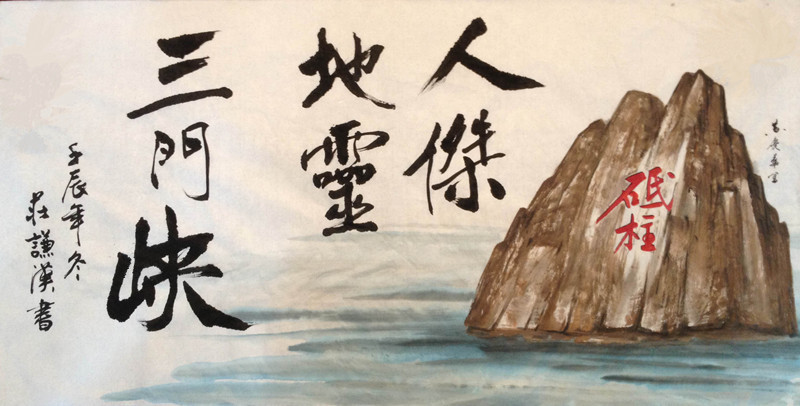 砥柱
人傑
地靈
三門峽
壬辰年冬
莊謙漢書